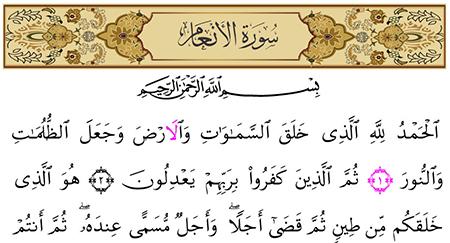 سُورَةُ الْأَنْعَامِ
بِسْمِ اللَّهِ الرَّحْمَٰنِ الرَّحِيمِ
ٱلْحَمْدُ لِلَّهِ ٱلَّذِى خَلَقَ ٱلسَّمَـٰوَٰتِ وَٱلَارْضَ وَجَعَلَ ٱلظُّلُمَـٰتِ
وَٱلنُّورَ ﴿١﴾ ثُمَّ ٱلَّذِينَ كَفَرُوا۟ بِرَبِّهِمْ يَعْدِلُونَ ﴿٢﴾ هُوَ ٱلَّذِى
خَلَقَكُم مِّن طِينٍ ثُمَّ قَضَىٰٓ أَجَلًا ۖ وَأَجَلٌ مُّسَمًّى عِندَهُۥ ۖ ثُمَّ أَنتُمْ